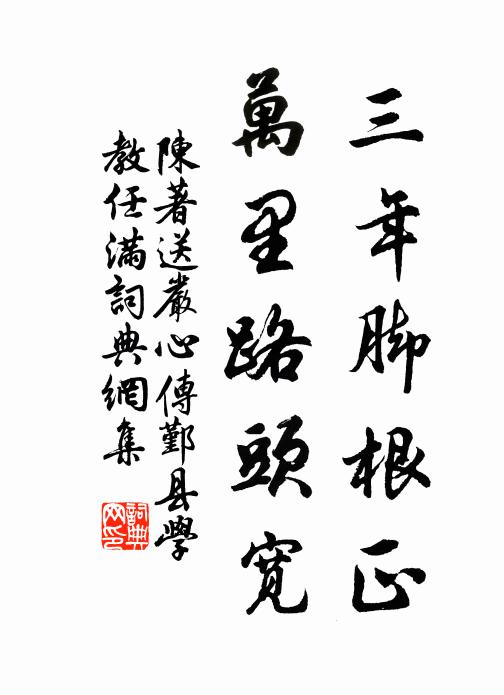 三年脚根正
萬里路頭寬
陳著送嚴心傅鄞县學
教任滿詞典網集
詞典
网印